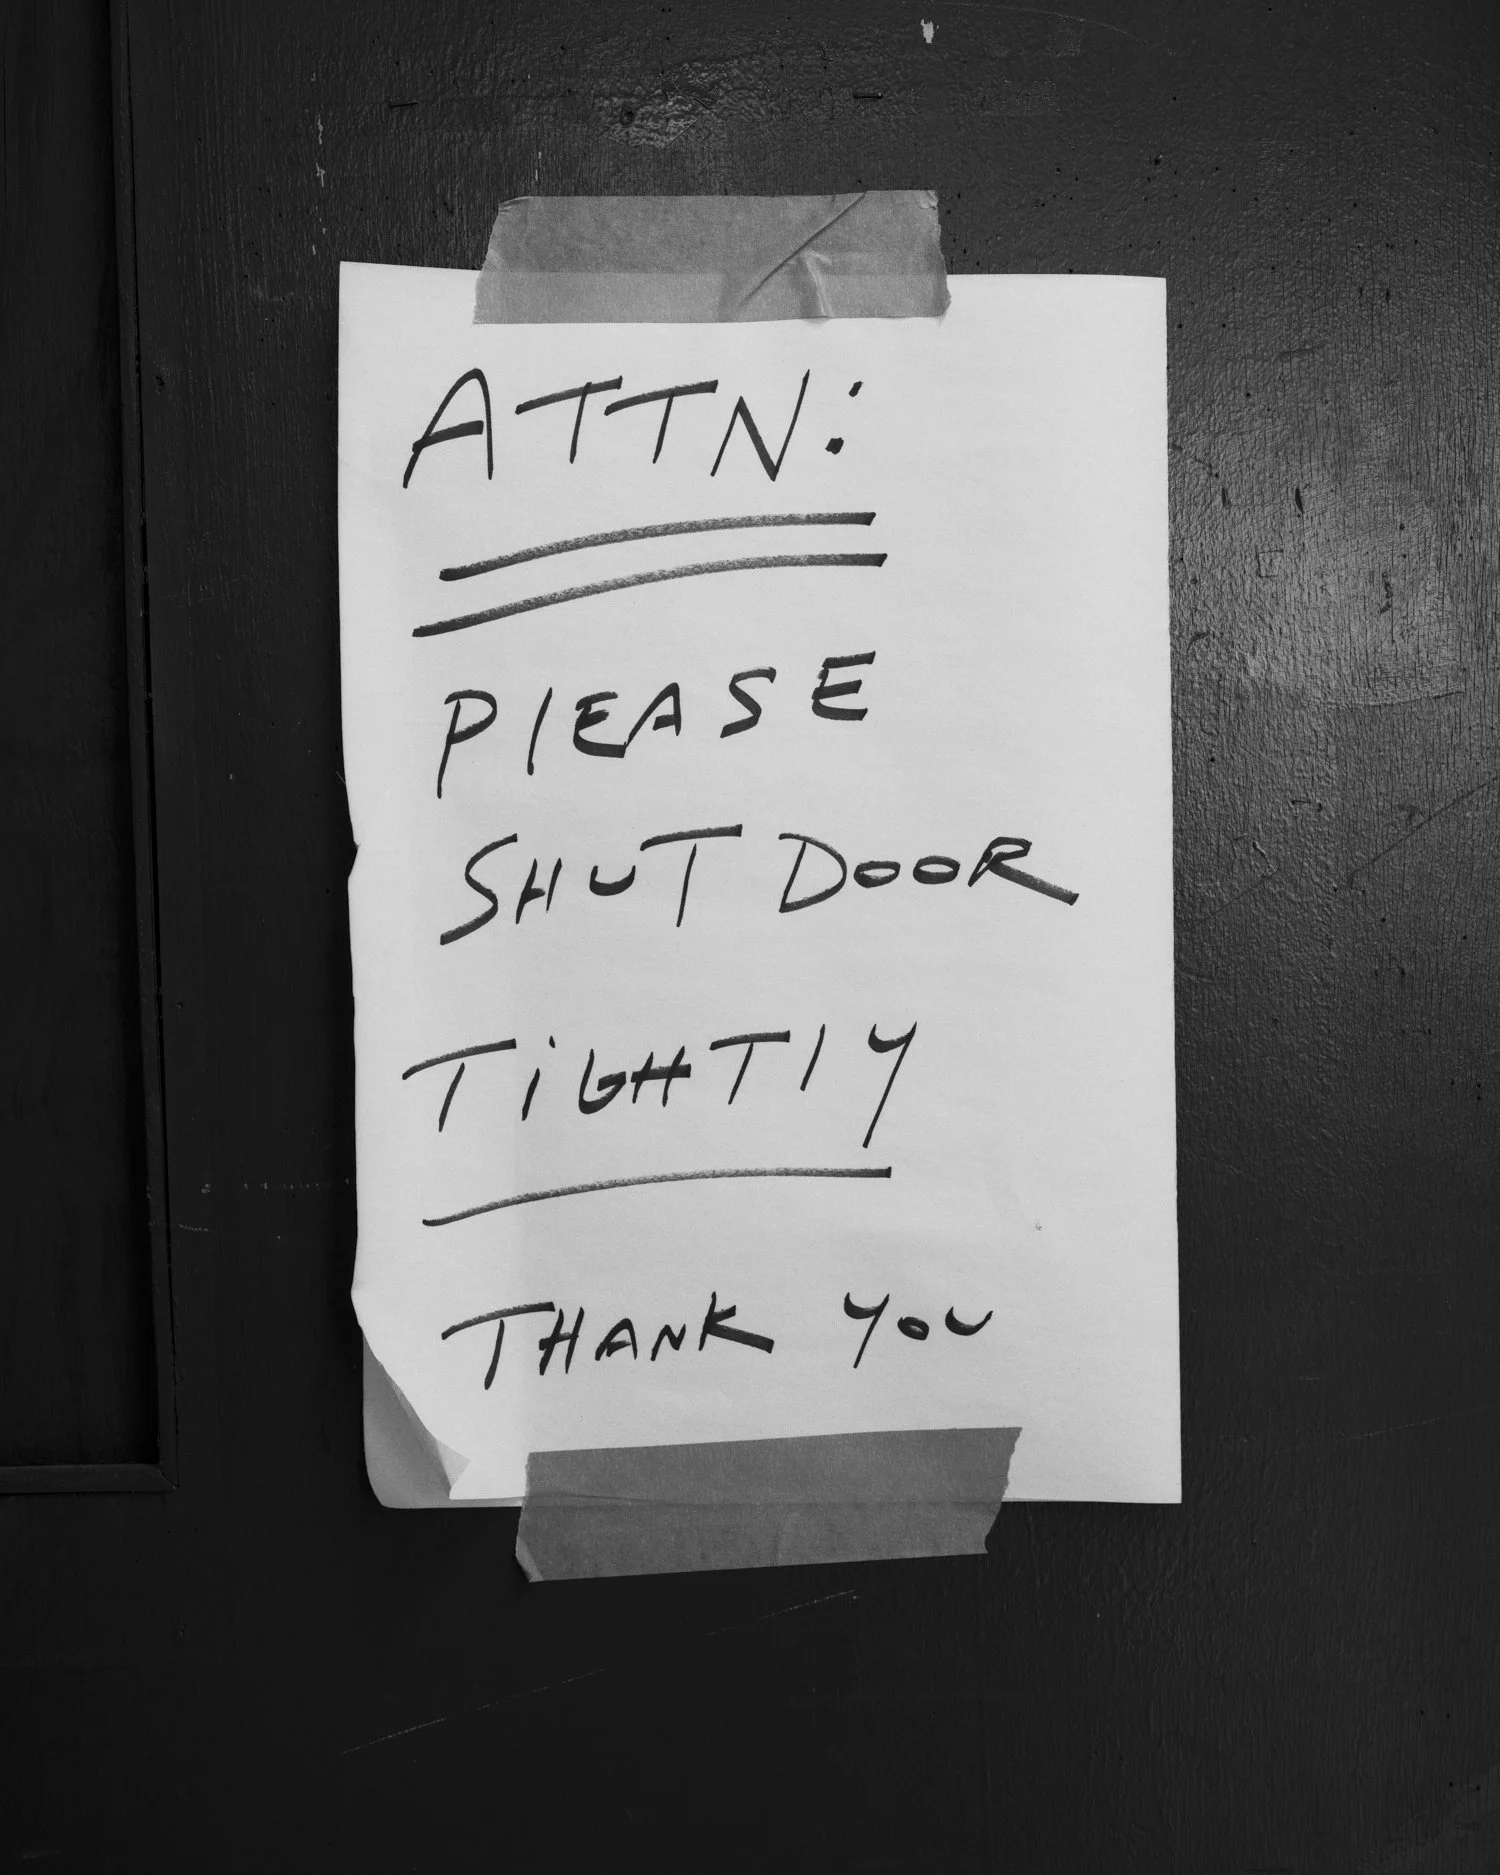 ATTN:
PlEASE
SHUT DOOR
TiGHTlY
THANK YOU